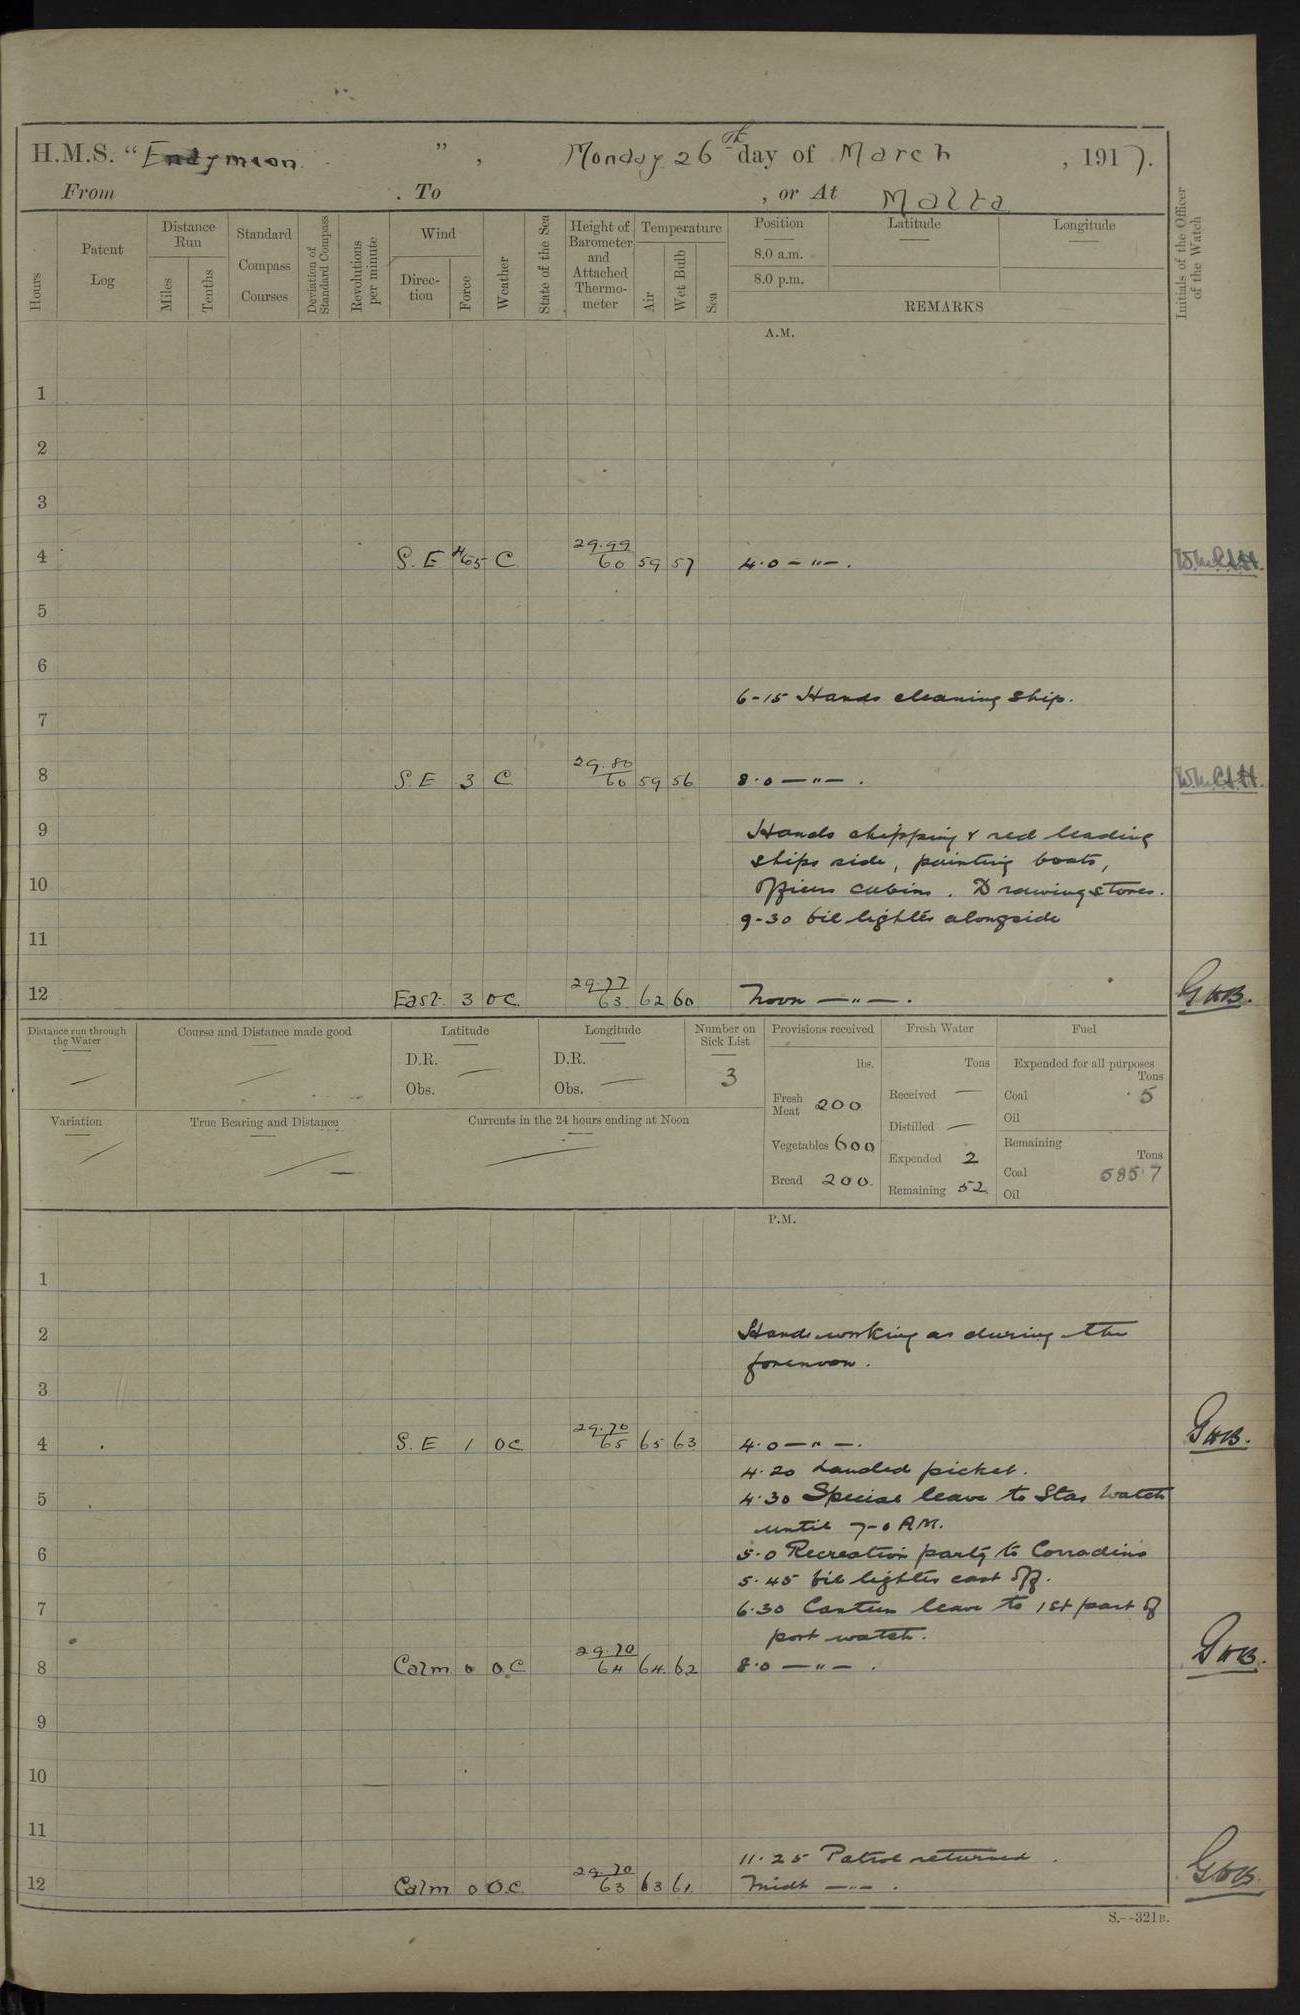 H.M.S. "Endymion" , Monday 26th day of March , 1917.
From . To , or At Malta
Hours
Patent Log
Distance Run
Miles
Tenths
Standard Compass Courses
Deviation of Standard Compass
Revolutions per minute
Wind
Direction
Force
Weather
State of the Sea
Height of Barometer and Attached Thermometer
Temperature
Air
Wet Bulb
Sea
Position
8.0 a.m.
8.0 p.m.
Latitude
Longitude
REMARKS
Initials of the Officer of the Watch
A.M.
1
2
3
4 S.E C 29.99 60 59 57 4.0 — " — .
5
6
6-15 Hands cleaning ship.
7
8 S.E 3 C 29.80 60 59 56 8.0 — " — .
9 Hands chipping & red leading
ships side, painting boats,
10 Officers cabins. Drawing stores.
9-30 Oil lighter alongside
11
12 East. 3 OC 29.77 63 62 60 Noon — " — . GWB.
Distance run through the Water
Course and Distance made good
Latitude
D.R.
Obs.
Longitude
D.R.
Obs.
Number on Sick List
3
Provisions received
lbs.
Fresh Meat 200
Vegetables 600
Bread 200.
Fresh Water
Tons
Received —
Distilled —
Expended 2
Remaining 52
Fuel
Expended for all purposes
Tons
Coal 5
Oil
Remaining
Tons
Coal 585.7
Oil
Variation
True Bearing and Distance
Currents in the 24 hours ending at Noon
P.M.
1
2 Hands working as during the
forenoon.
3
4 S.E 1 OC 29.70 65 65 63 4.0 — " — . GWB.
4.20 Landed picket.
5 4.30 Special leave to Star Watch
until 7-0 AM.
6 5.0 Recreation party to Corradino
5.45 Oil lighter cast off.
7 6.30 Canteen leave to 1st part of
port watch.
8 Calm 0 O.C 29.70 64 64 62 8.0 — " — . GWB.
9
10
11
11.25 Patrol returned.
12 Calm 0 O.C. 29.70 63 63 61 Midt — " — . GWB
S.—321B.